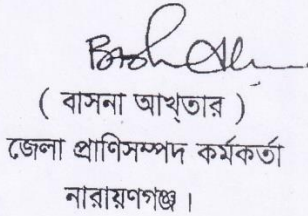 ( বাসনা আখ্তার )
জেলা প্রাণিসম্পদ কর্মকর্তা
নারায়ণগঞ্জ।